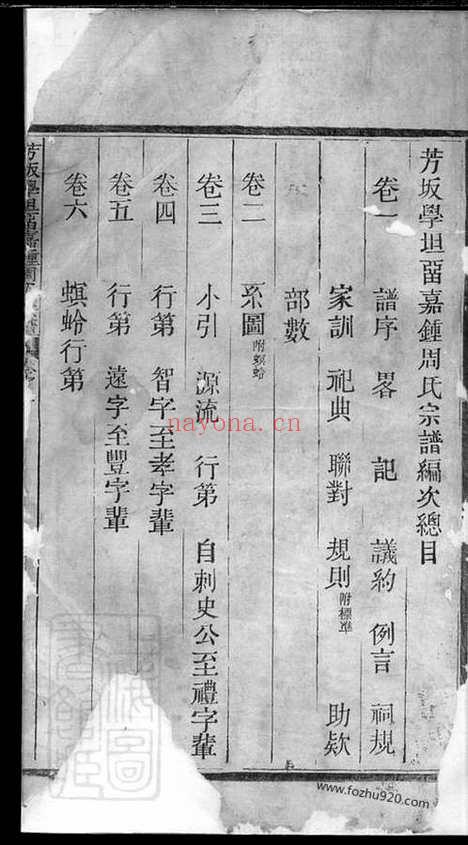 芳坂學坦畱嘉鍾周氏宗譜編次總目
卷一 譜序 畧 記 議約 例言 祠規
家訓 祀典 聯對 規則附標準 助欵
部數
卷二 系圖附螟蛉
卷三 小引 源流 行第 自刺史公至禮字輩
卷四 行第 智字至孝字輩
卷五 行第 遠字至豐字輩
卷六 螟蛉行第
芳坂學坦畱嘉鍾周
nayona.cn
www.fozhu920.com